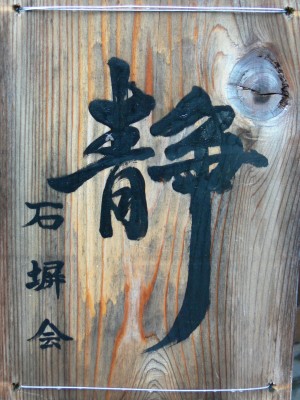 静
石塀会